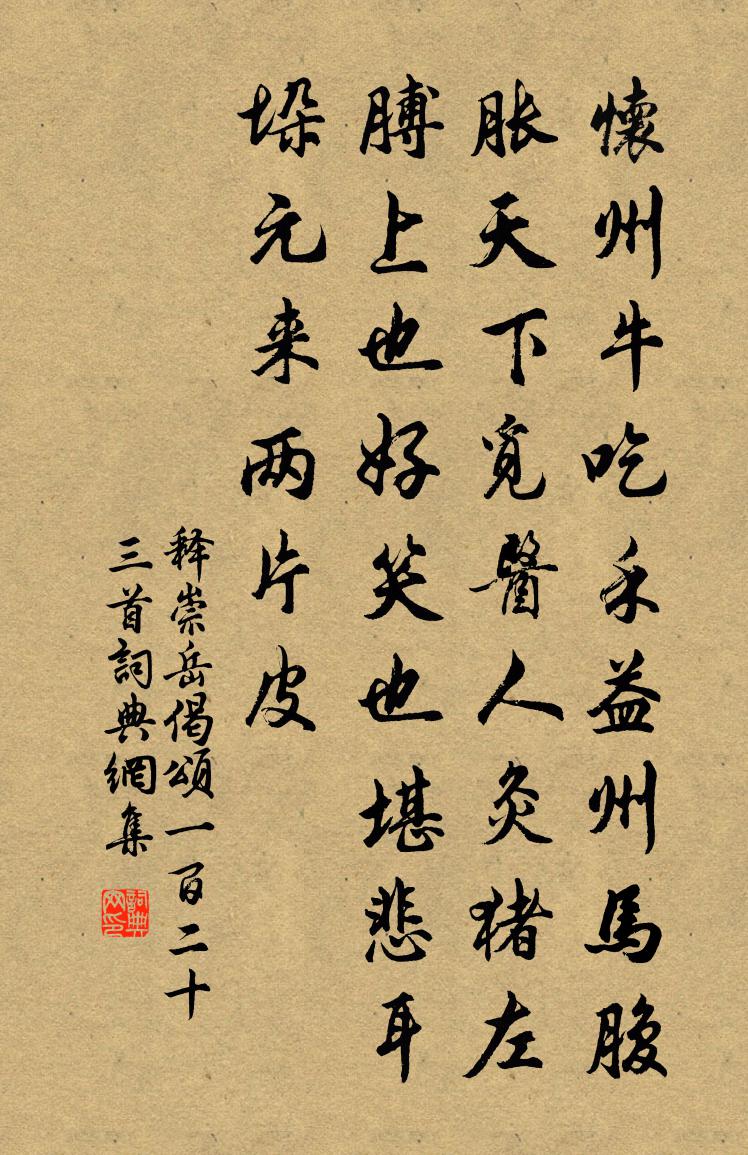 懷州牛吃禾益州馬腹
脹天下覓醫人灸猪左
膊上也好笑也堪悲耳
垛元来两片皮
释崇岳偈頌一百二十
三首詞典網集
詞典网印